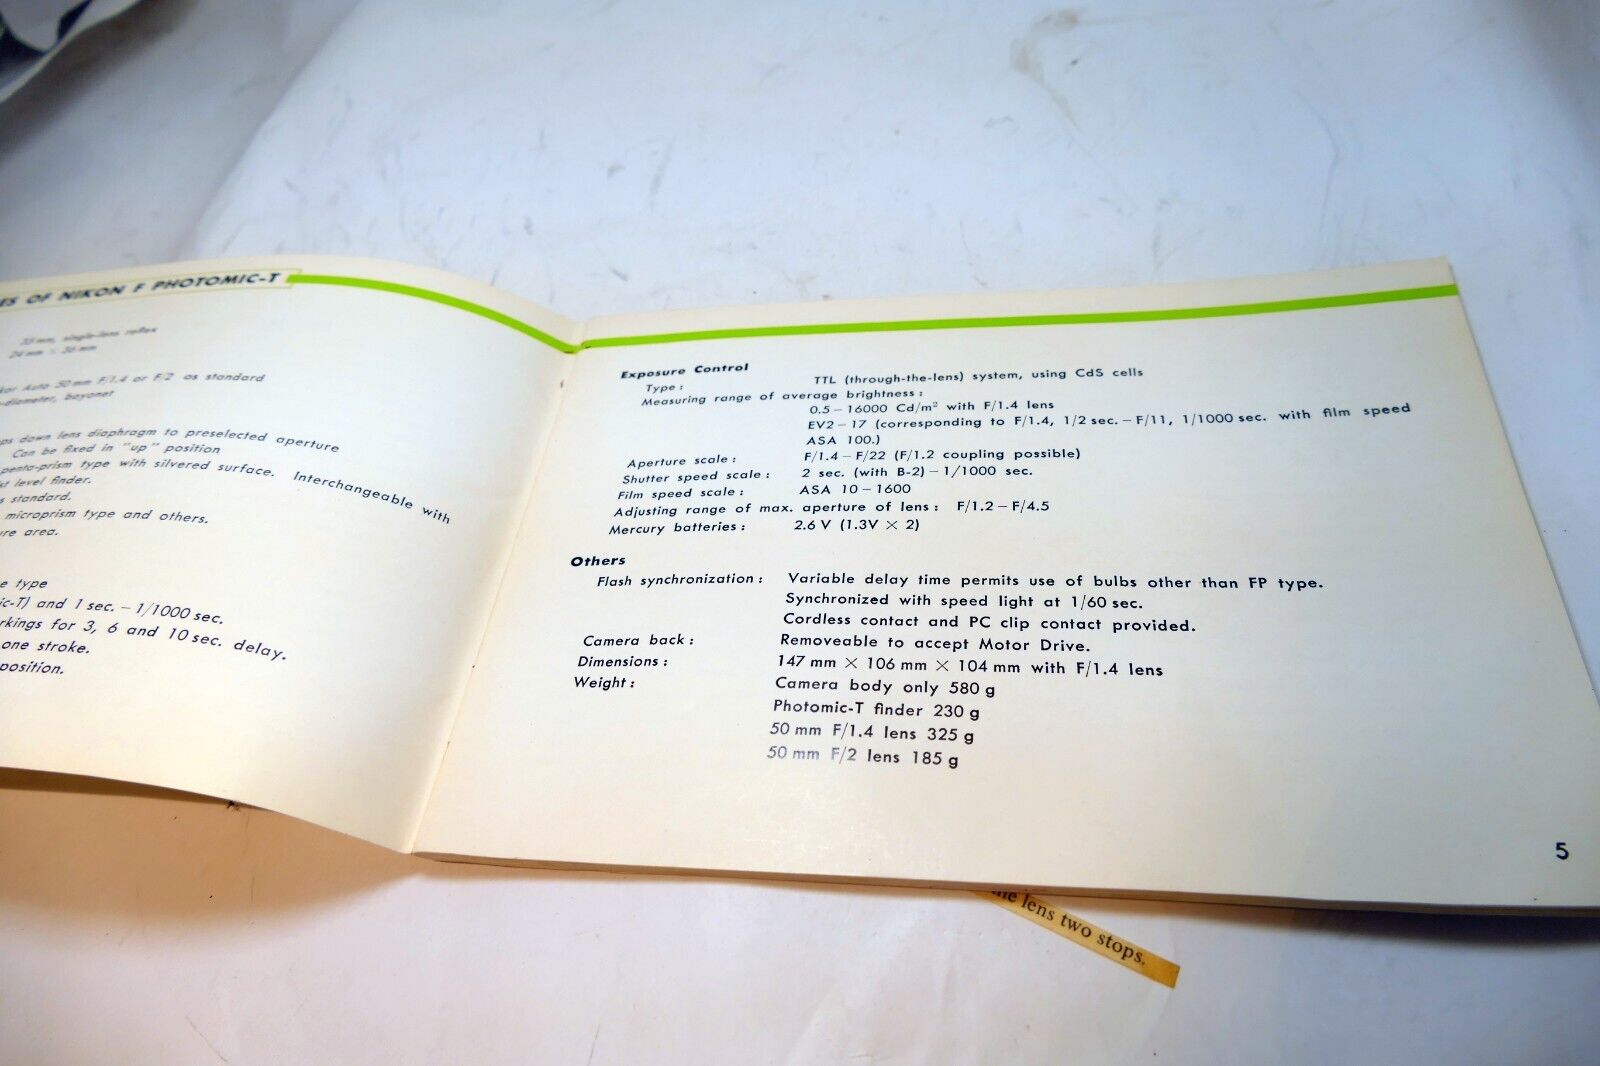 ES OF NIKON F PHOTOMIC-T
35 mm, single-lens reflex
24 mm × 36 mm
Auto 50 mm F/1.4 or F/2 as standard
-diameter, bayonet
down lens diaphragm to preselected aperture
Can be fixed in "up" position
penta-prism type with silvered surface. Interchangeable with
level finder.
standard.
microprism type and others.
area.
type
and 1 sec. – 1/1000 sec.
for 3, 6 and 10 sec. delay.
one stroke.
position.
Exposure Control
Type : TTL (through-the-lens) system, using CdS cells
Measuring range of average brightness :
0.5 – 16000 Cd/m² with F/1.4 lens
EV2 – 17 (corresponding to F/1.4, 1/2 sec. – F/11, 1/1000 sec. with film speed
ASA 100.)
Aperture scale : F/1.4 – F/22 (F/1.2 coupling possible)
Shutter speed scale : 2 sec. (with B-2) – 1/1000 sec.
Film speed scale : ASA 10 – 1600
Adjusting range of max. aperture of lens : F/1.2 – F/4.5
Mercury batteries : 2.6 V (1.3V × 2)
Others
Flash synchronization : Variable delay time permits use of bulbs other than FP type.
Synchronized with speed light at 1/60 sec.
Cordless contact and PC clip contact provided.
Camera back : Removeable to accept Motor Drive.
Dimensions : 147 mm × 106 mm × 104 mm with F/1.4 lens
Weight : Camera body only 580 g
Photomic-T finder 230 g
50 mm F/1.4 lens 325 g
50 mm F/2 lens 185 g
5
lens two stops.